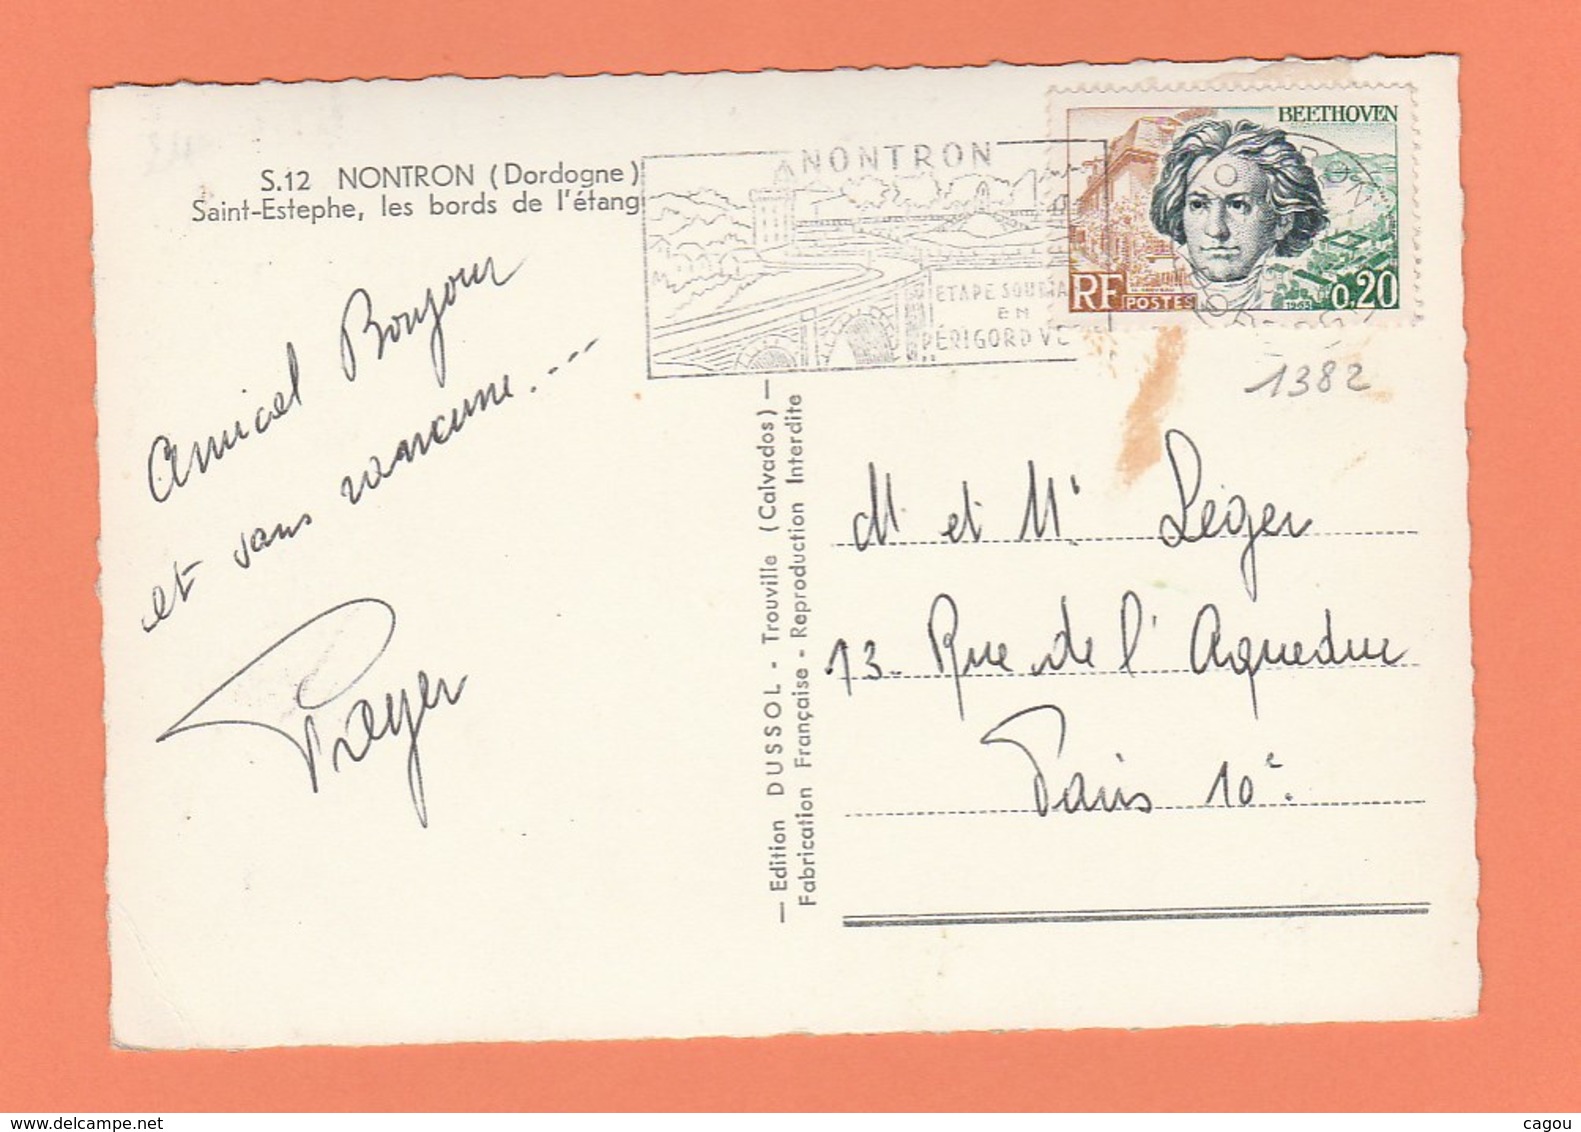 S.12 NONTRON (Dordogne)
Saint-Estephe, les bords de l'étang
NONTRON
ETAPE SOURIA
EN
PÉRIGORD VE
BEETHOVEN
RF POSTES 1963 0,20
1382
Amical Bonjour
et sans rancune...
— Edition DUSSOL - Trouville (Calvados) —
Fabrication Française - Reproduction Interdite
M et Me Léger
13. Rue de l'Aqueduc
Paris 10e.
cagou